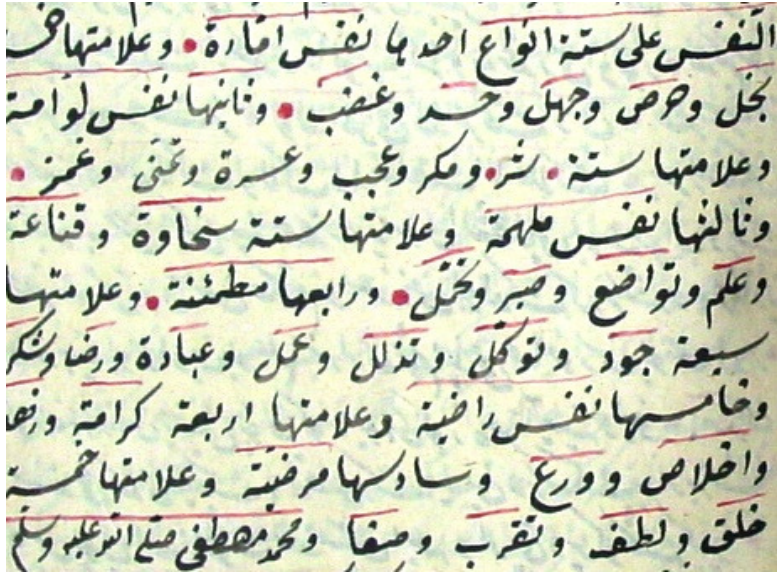 النفس على ستة انواع احدها نفس امارة • وعلامتها خمسة
بخل وحرص وجهل وحسد وغضب • وثانيها نفس لوامة
وعلامتها ستة • شر • ومكر وعجب وعسرة وتمنى وغمز •
وثالثها نفس ملهمة وعلامتها ستة سخاوة وقناعة
وعلم وتواضع وصبر وتحمل • ورابعها مطمئنة • وعلامتها
سبعة جود وتوكل وتذلل وعمل وعبادة ورضا وشكر
وخامسها نفس راضية وعلامتها اربعة كرامة
واخلاص وورع وسادسها مرضية وعلامتها خمسة
خلق ولطف وتقرب وصفا ومحمد مصطفى صلى الله عليه وسلم